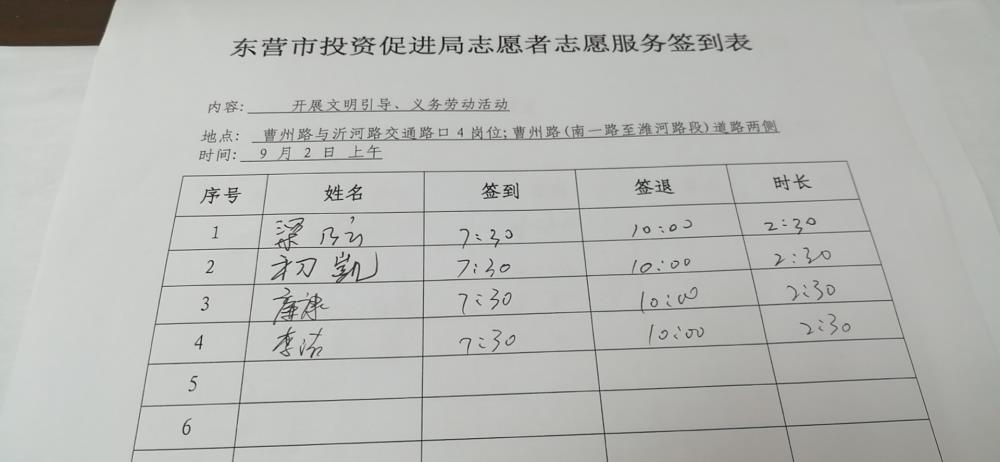 东营市投资促进局志愿者志愿服务签到表
内容: 开展文明引导、义务劳动活动
地点: 曹州路与沂河路交通路口4岗位;曹州路(南一路至潍河路段)道路两侧
时间: 9月2日 上午
序号 姓名 签到 签退 时长
1 7:30 10:00 2:30
2 初凯 7:30 10:00 2:30
3 7:30 10:00 2:30
4 李洁 7:30 10:00 2:30
5
6